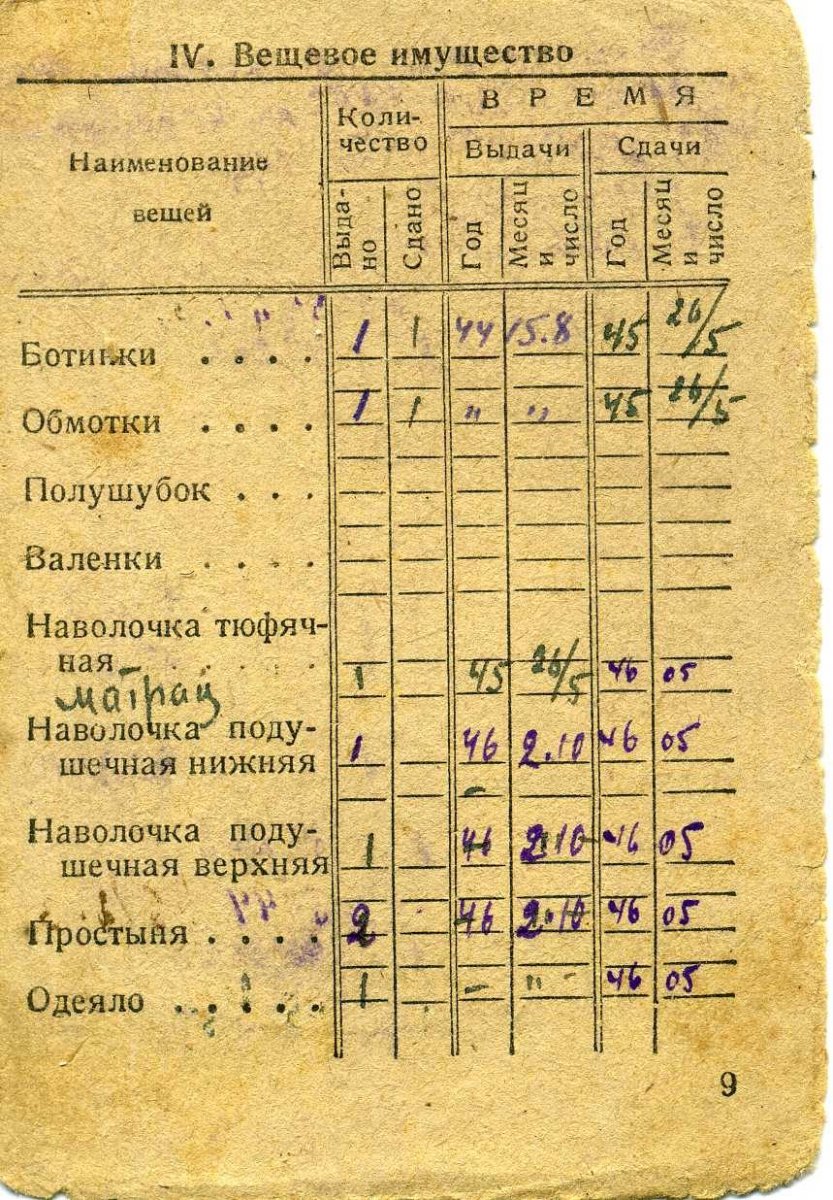 IV. Вещевое имущество
Наименование вещей
Коли-
чество
ВРЕМЯ
Выдачи
Сдачи
Выда-
но
Сдано
Год
Месяц
и
число
Год
Месяц
и
число
Ботинки . . . . 1 1 44 15.8 45 26/5
Обмотки . . . . 1 1 " " 45 26/5
Полушубок . . .
Валенки . . . .
Наволочка тюфяч-
ная . . . . . 1 45 26/5 46 05
матрац
Наволочка поду-
шечная нижняя 1 46 2.10 46 05
Наволочка поду-
шечная верхняя 1 46 2.10 46 05
Простыня . . . . 2 46 2.10 46 05
Одеяло . . . . . 1 - " - 46 05
9